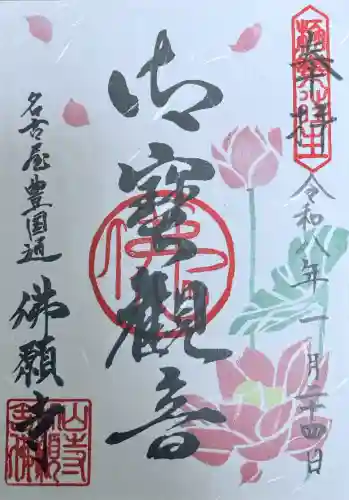 奉拝
令和八年一月二十四日
御寶観音
名古屋豊国通
佛願寺